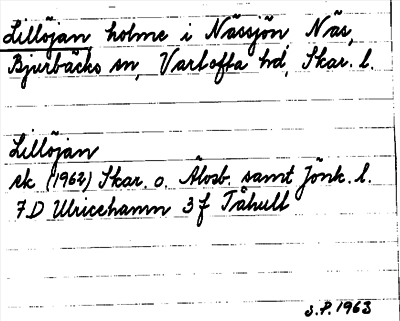 Lillöjan holme i Nässjön, Näs,
Bjurbäcks sn, Vartofta hd, Skar. l.
Lillöjan
sk (1962) Skar. o. Älvsb. samt Jönk. l.
7D Ulricehamn 3f Tåhult
S.P. 1963